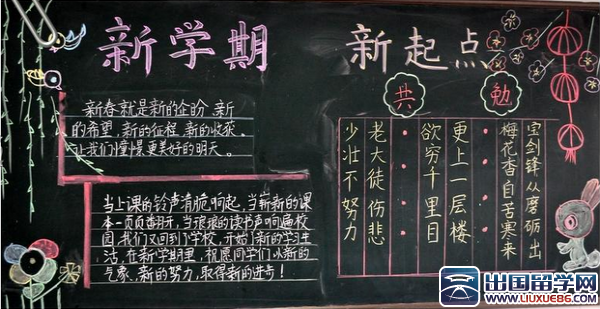 新学期 新起点
新春就是新的企盼 新
的希望、新的征程、新的收获、
让我们憧憬更美好的明天。
当上课的铃声清脆响起，当新新的课
本一页页翻开，当琅琅的读书声响遍校
园，我们又回到了学校，开始了新的学习生
活，在新学期里，祝愿同学们以新的
气象、新的努力，取得新的进步！
共勉
宝剑锋从磨砺出
梅花香自苦寒来
更上一层楼
欲穷千里目
老大徒伤悲
少壮不努力
出国留学网
www.LiUXUE86.com